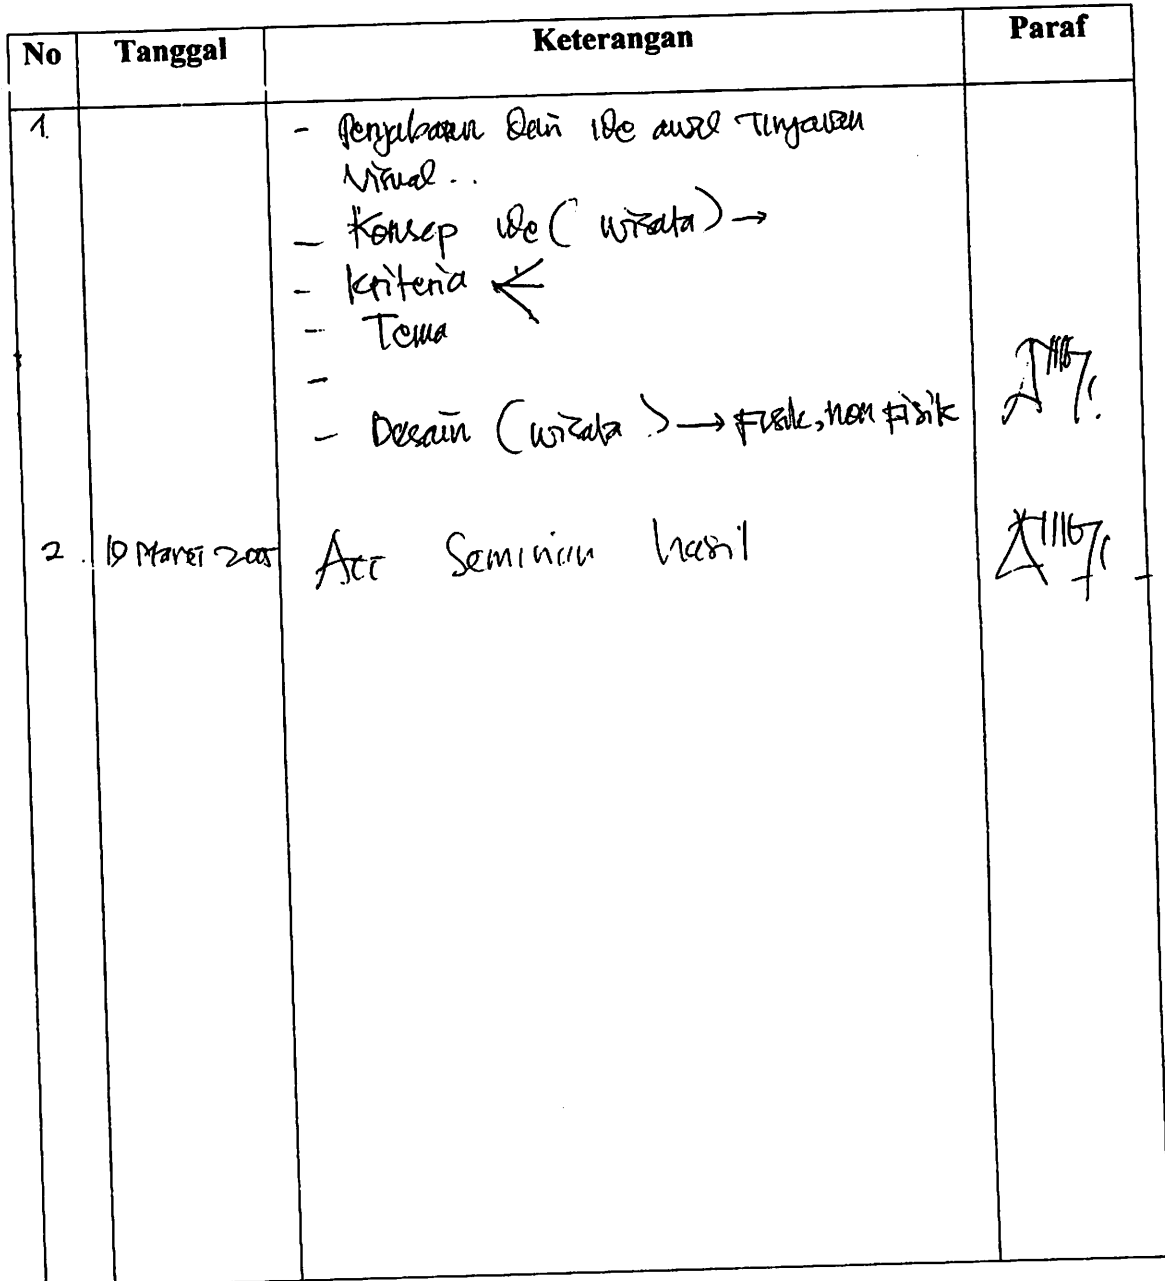 No Tanggal Keterangan Paraf
1. - Penjabaran dari ide awal Tinjauan
Visual ..
- Konsep ide ( wisata ) →
- Kriteria
- Tema
-
- Desain ( wisata ) → Fisik, non Fisik
2. Maret 2005 Acc Seminar hasil